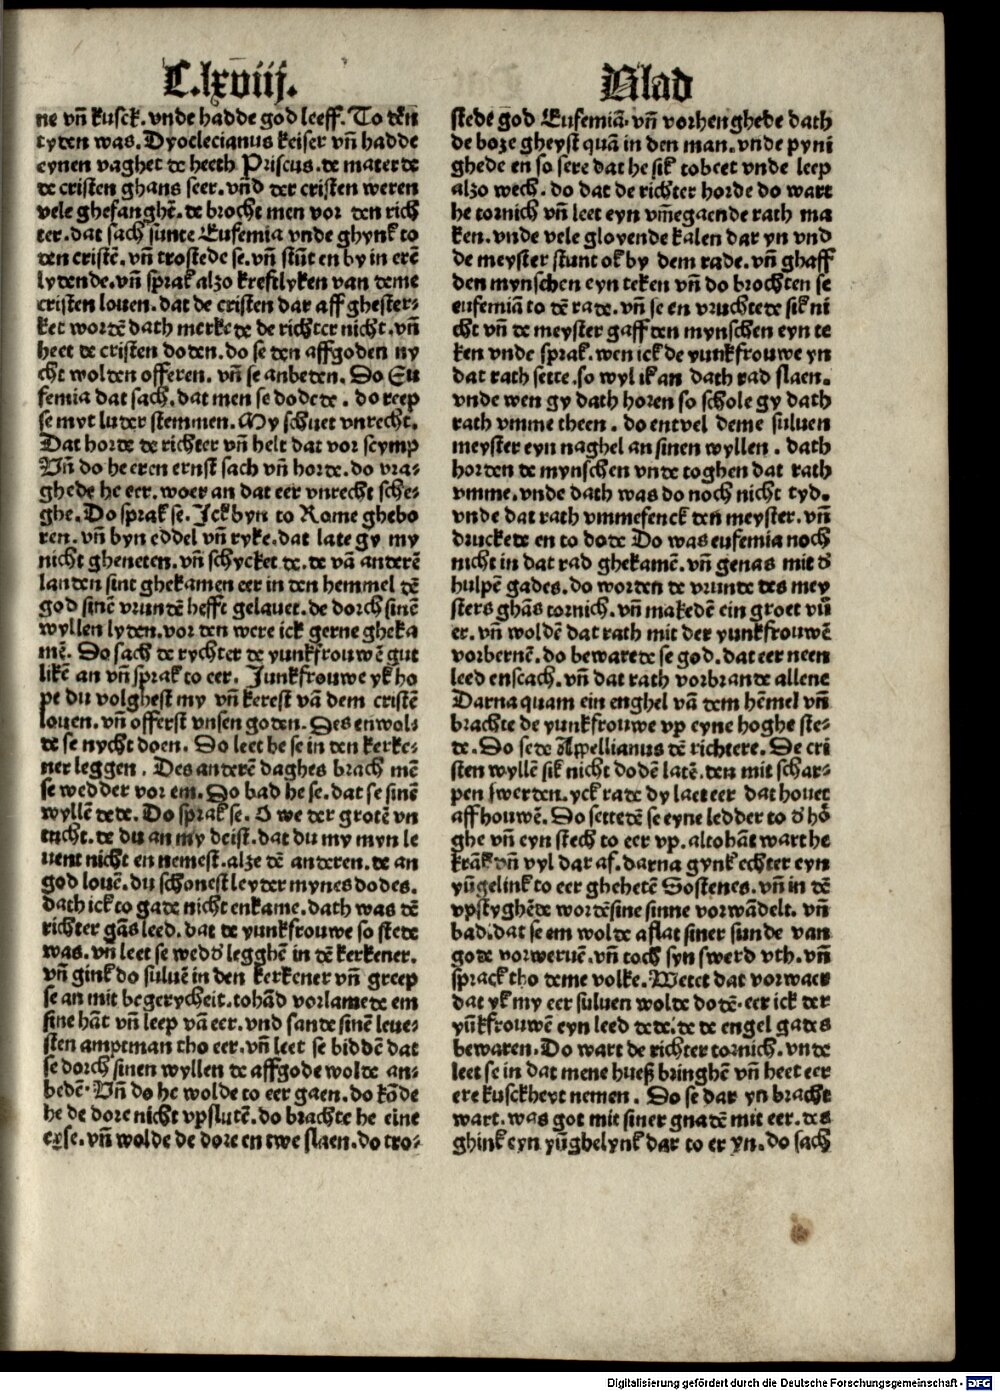 C.lxviij.
Blad
ne vn̄ kusck. vnde hadde god leeff. To dēn
tyden was. Dyoclecianus keiser vn̄ hadde
eynen vaghet de heeth Priscus. de mater de
de cristen ghans seer. vn̄d der cristen weren
vele ghefanghē. de brocht men vor den rich
ter. dat sach sunte Eufemia vnde ghynk to
den cristē. vn̄ trostede se. vn̄ stūt en by in erē
lydende. vn̄ sprak alzo kreftlyken van deme
cristen louen. dat de cristen dar aff ghester⸗
ket wordē dath merkede de richter nicht. vn̄
heet de cristen doden. do se den affgoden ny
cht wolden offeren. vn̄ se anbeten. Do Eu
femia dat sach. dat men se dodede. do reep
se myt luder stemmen. My schuet vnrecht.
Dat horde de richter vn̄ helt dat vor scymp
Vn̄ do he eren ernst sach vn̄ horde. do vra⸗
ghede he eer. woer an dat eer vnrecht sche⸗
ghe. Do sprak se. Ick byn to Rome ghebo
ren. vn̄ byn eddel vn̄ ryke. dat late gy my
nicht gheneten. vn̄ schycket de. de vā anderē
landen sint ghekamen eer in den hemmel dē
god sinē vrundē hefft gelauet. de dorch sinē
wyllen lyden. vor den were ick gerne gheka
mē. Do sach de rychter de yunkfrouwē gut
likē an vn̄ sprak to eer. Junkfrouwe yk ho
pe du volghest my vn̄ kerest vā dem cristē
louen. vn̄ offerst vnsen goden. Des en wol⸗
de se nycht doen. Do leet he se in den kerke⸗
ner leggen. Des anderē daghes brach mē
se wedder vor em. Do bad he se. dat se sinē
wyllē dede. Do sprak se. O we der grotē vn
tucht. de du an my deist. dat du my myn le
uent nicht en nemest. alze dē anderen. de an
god louē. du schonest leyder mynes dodes.
dath ick to gade nicht enkame. dath was dē
richter gās leed. dat de yunkfrouwe so stede
was. vn̄ leet se wedd' legghē in dē kerkener.
vn̄ gink do suluē in den kerkener vn̄ greep
se an mit begerycheit. tohād vorlamede em
sine hāt vn̄ leep vā eer. vnd sande sinē leue⸗
sten amptman tho eer. vn̄ leet se biddē dat
se dorch sinen wyllen de affgode wolde an⸗
bedē. Vn̄ do he wolde to eer gaen. do kōde
he de dore nicht vpslutē. do brachte he eine
exse. vn̄ wolde de dore en twe slaen. do tro⸗
stede god Eufemiā. vn̄ vorhenghede dath
de boze gheyst quā in den man. vnde pyni
ghede en so sere dat he sik tobeet vnde leep
alzo wech. do dat de richter horde do wart
he tornich vn̄ leet eyn vm̄egaende rath ma
ken. vnde vele glovende kalen dar yn vnd
de meyster stunt ok by dem rade. vn̄ ghaff
den mynschen eyn teken vn̄ do brochten se
eufemiā to dē rade. vn̄ se en vruchtede sik ni
cht vn̄ de meyster gaff den mynschen eyn te
ken vnde sprak. wen ick de yunkfrouwe yn
dat rath sette. so wyl ik an dath rad slaen.
vnde wen gy dath horen so schole gy dath
rath vmme theen. do entvel deme suluen
meyster eyn naghel an sinen wyllen. dath
horden de mynschen vnde toghen dat rath
vmme. vnde dath was do noch nicht tyd.
vnde dat rath vmmefenck den meyster. vn̄
druckede en to dode Do was eufemia noch
nicht in dat rad ghekamē. vn̄ genas mit d'
hulpē gades. do worden de vrunde des mey
sters ghās tornich. vn̄ makedē ein groet vū
er. vn̄ woldē dat rath mit der yunkfrouwē
vorbernē. do bewarede se god. dat eer neen
leed enscach. vn̄ dat rath vorbrande allene
Darna quam ein enghel vā dem hēmel vn̄
brachte de yunkfrouwe vp eyne hoghe ste⸗
de. Do sede Appellianus dē richtere. De cri
sten wyllē sik nicht dodē latē. den mit schar⸗
pen swerden. yck rade dy laet eer dat houet
aff houwē. Do settedē se eyne ledder to d' hō
ghe vn̄ eyn stech to eer vp. altohāt wart he
krāk vn̄ vyl dar af. darna gynk echter eyn
yūgelink to eer ghehetē Sostenes. vn̄ in dē
vpstyghēde wordē sine sinne vorwādelt. vn̄
bad. dat se em wolde aflat siner sunde van
gode vorweruē. vn̄ toch syn swerd vth. vn̄
sprack tho deme volke. Wetet dat vorwaer
dat yk my eer suluen wolde dodē. eer ick der
yūkfrouwē eyn leed dede. de de engel gades
bewaren. Do wart de richter tornich. vnde
leet se in dat mene hueß bringhē vn̄ heet eer
ere kusckheyt nemen. Do se dar yn bracht
wart. was got mit siner gnadē mit eer. des
ghink eyn yūghelynk dar to er yn. do sach
Digitalisierung gefördert durch die Deutsche Forschungsgemeinschaft - DFG